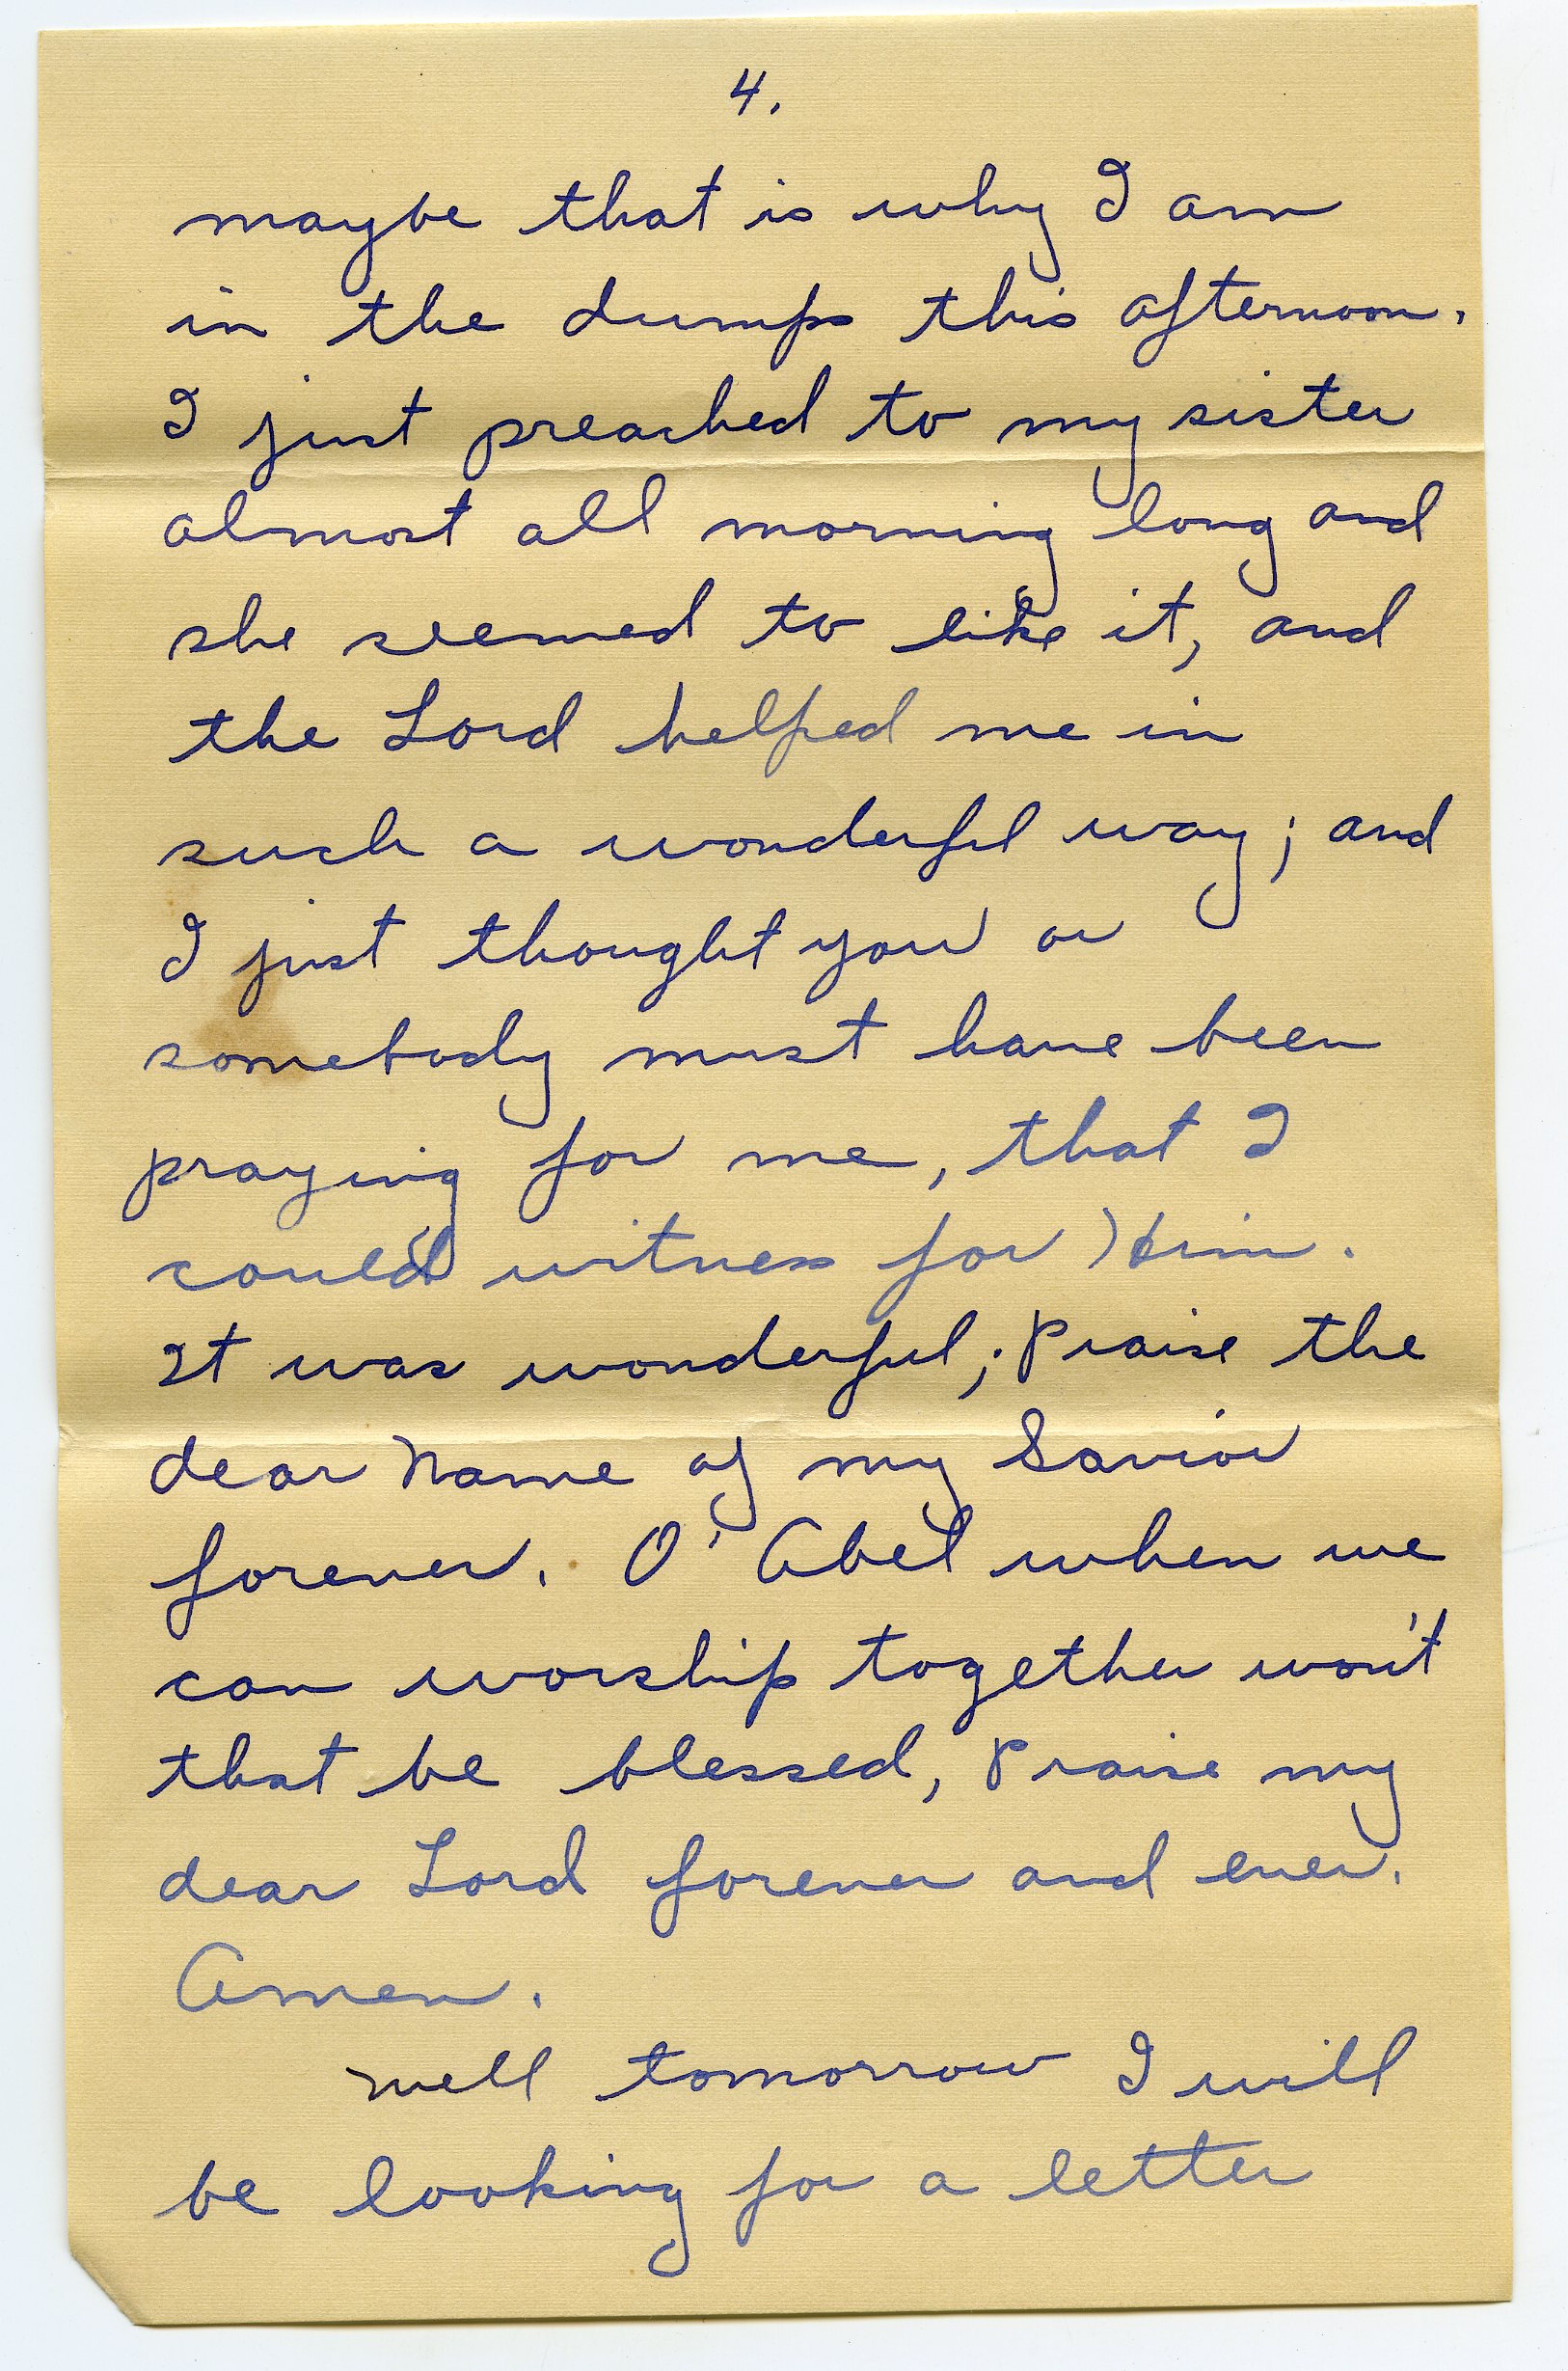 4.
maybe that is why I am
in the dumps this afternoon.
I just preached to my sister
almost all morning long and
she seemed to like it, and
the Lord helped me in
such a wonderful way; and
I just thought you or
somebody must have been
praying for me, that I
could witness for Him.
It was wonderful; Praise the
dear Name of my Savior
forever. O' Abel when we
can worship together won't
that be blessed, Praise my
dear Lord forever and ever.
Amen.
Well tomorrow I will
be looking for a letter